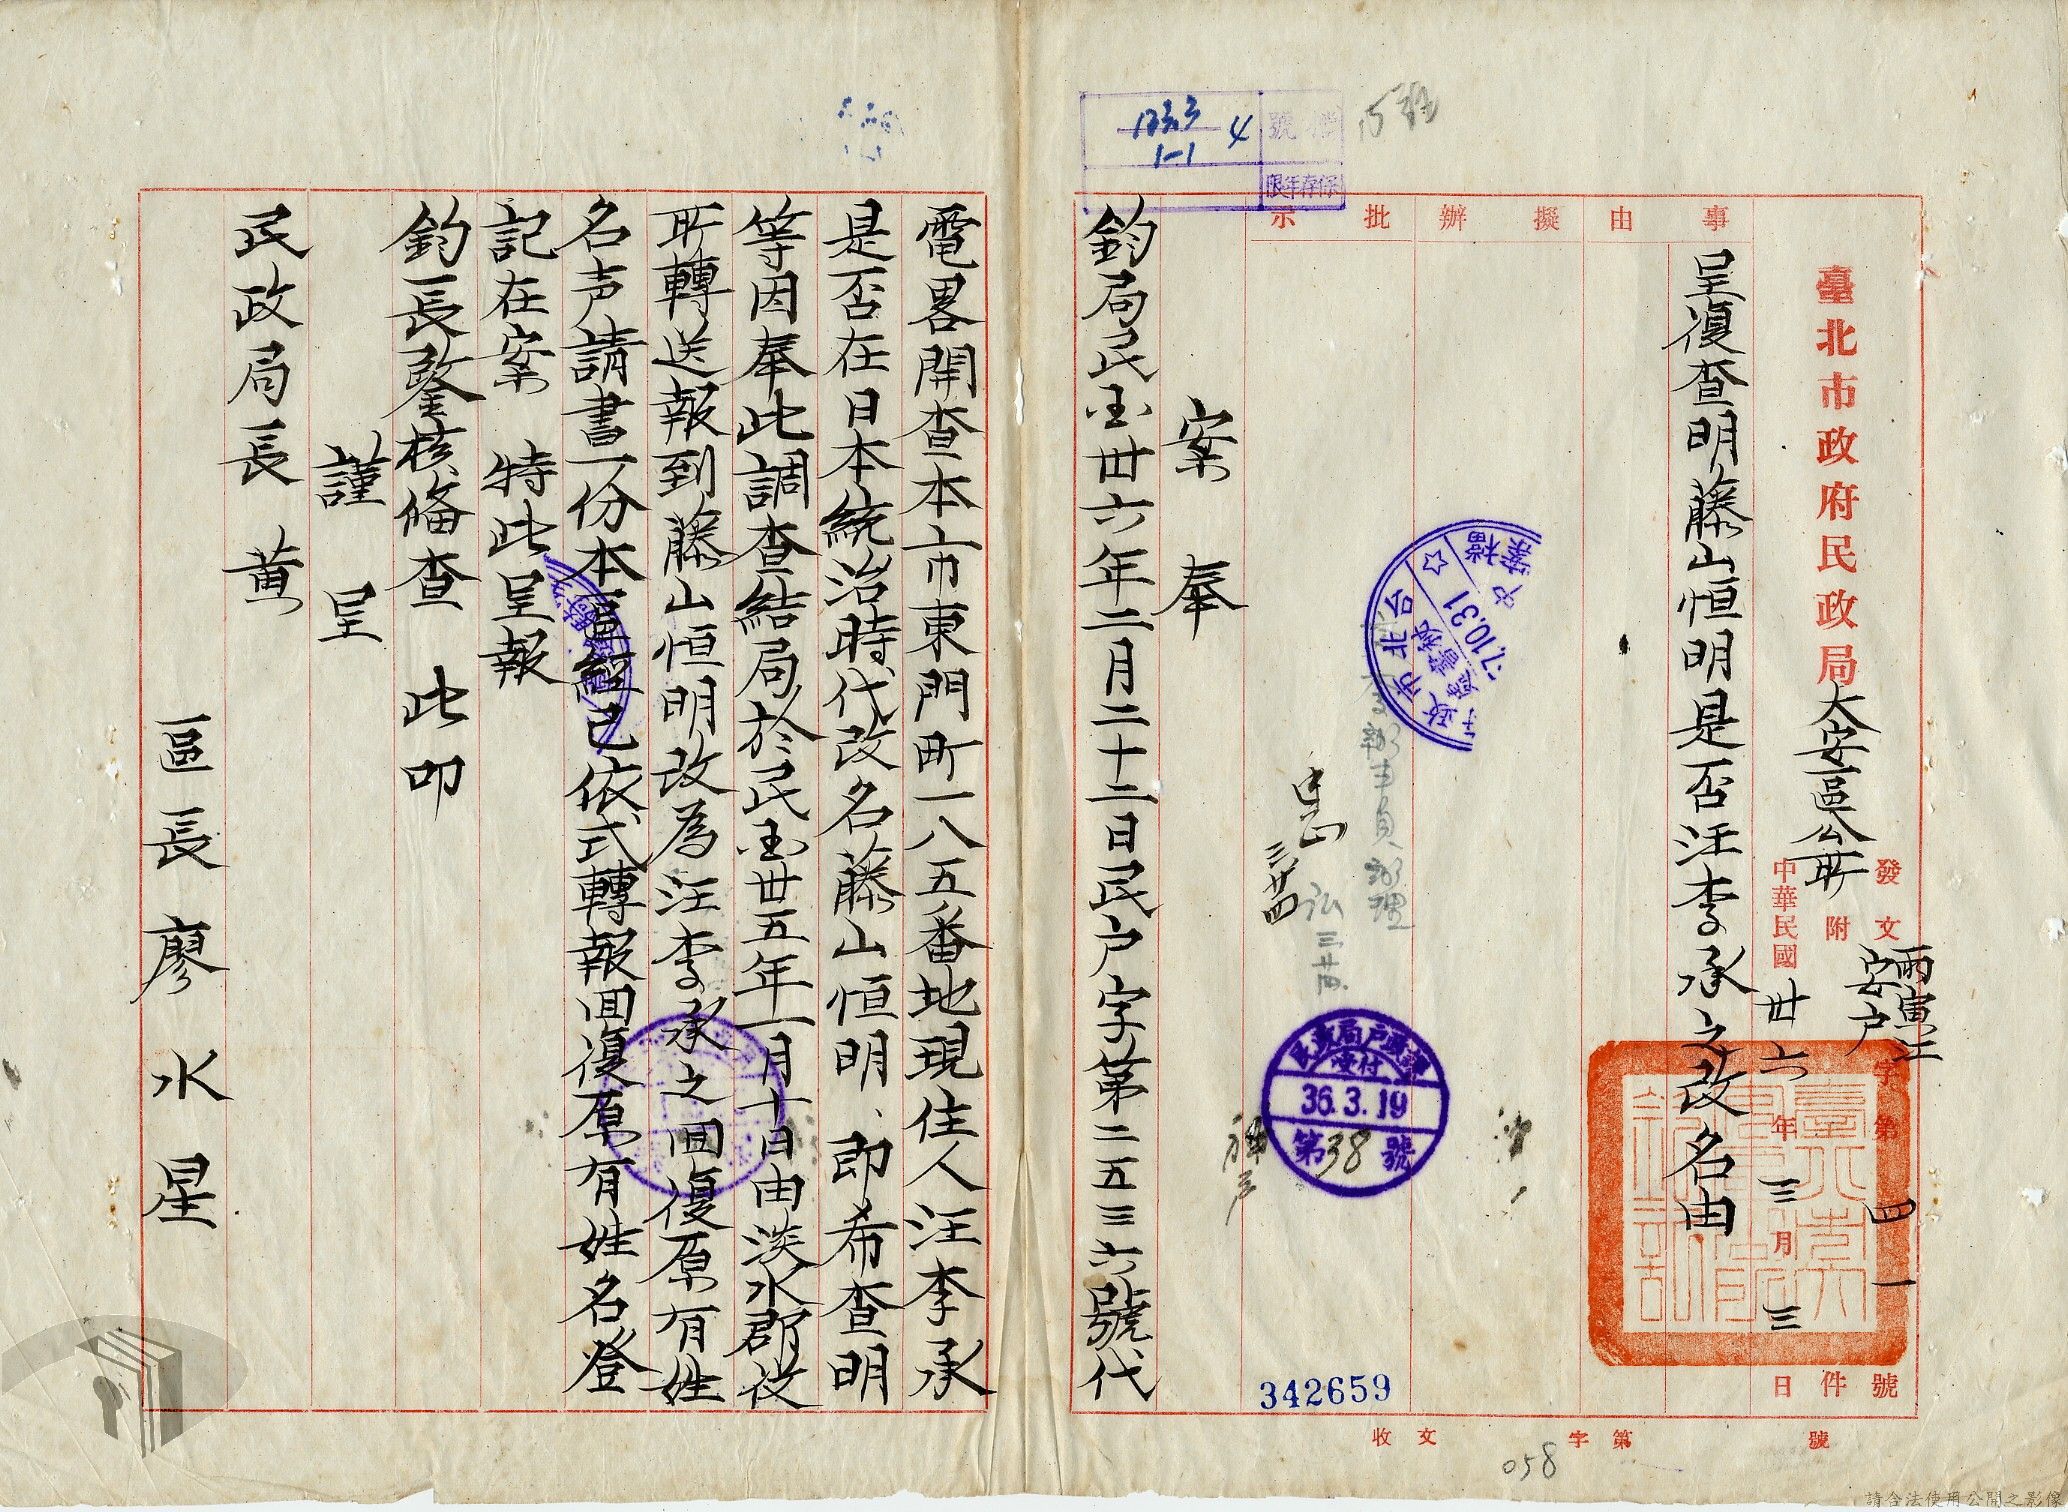 臺北市政府民政局大安區公所
發文 安戶字第四一號
附 件
中華民國卅六年三月三日
事由
擬辦
批示
呈復查明藤山恒明是否汪李承之改名由
案奉
鈞局民国卅六年二月二十二日民户字第二五三六號代
電畧開查本市東門町一八五番地現住人汪李承
是否在日本統治時代改名藤山恒明、即希查明
等因奉此調查結局於民国卅五年一月十日由淡水郡役
所轉送報到藤山恒明改為汪李承之囬復原有姓
名声請書一份本區經已依式轉報囬復原有姓名登
記在案 特此呈報
鈞長鑒核俻查 此叩
謹呈
民政局長 黄
區長廖水星
檔號
123.3
1-1
4
保存年限
36.3.19
第38號
342659
收文 字第 號
058
請合法使用公開之影像